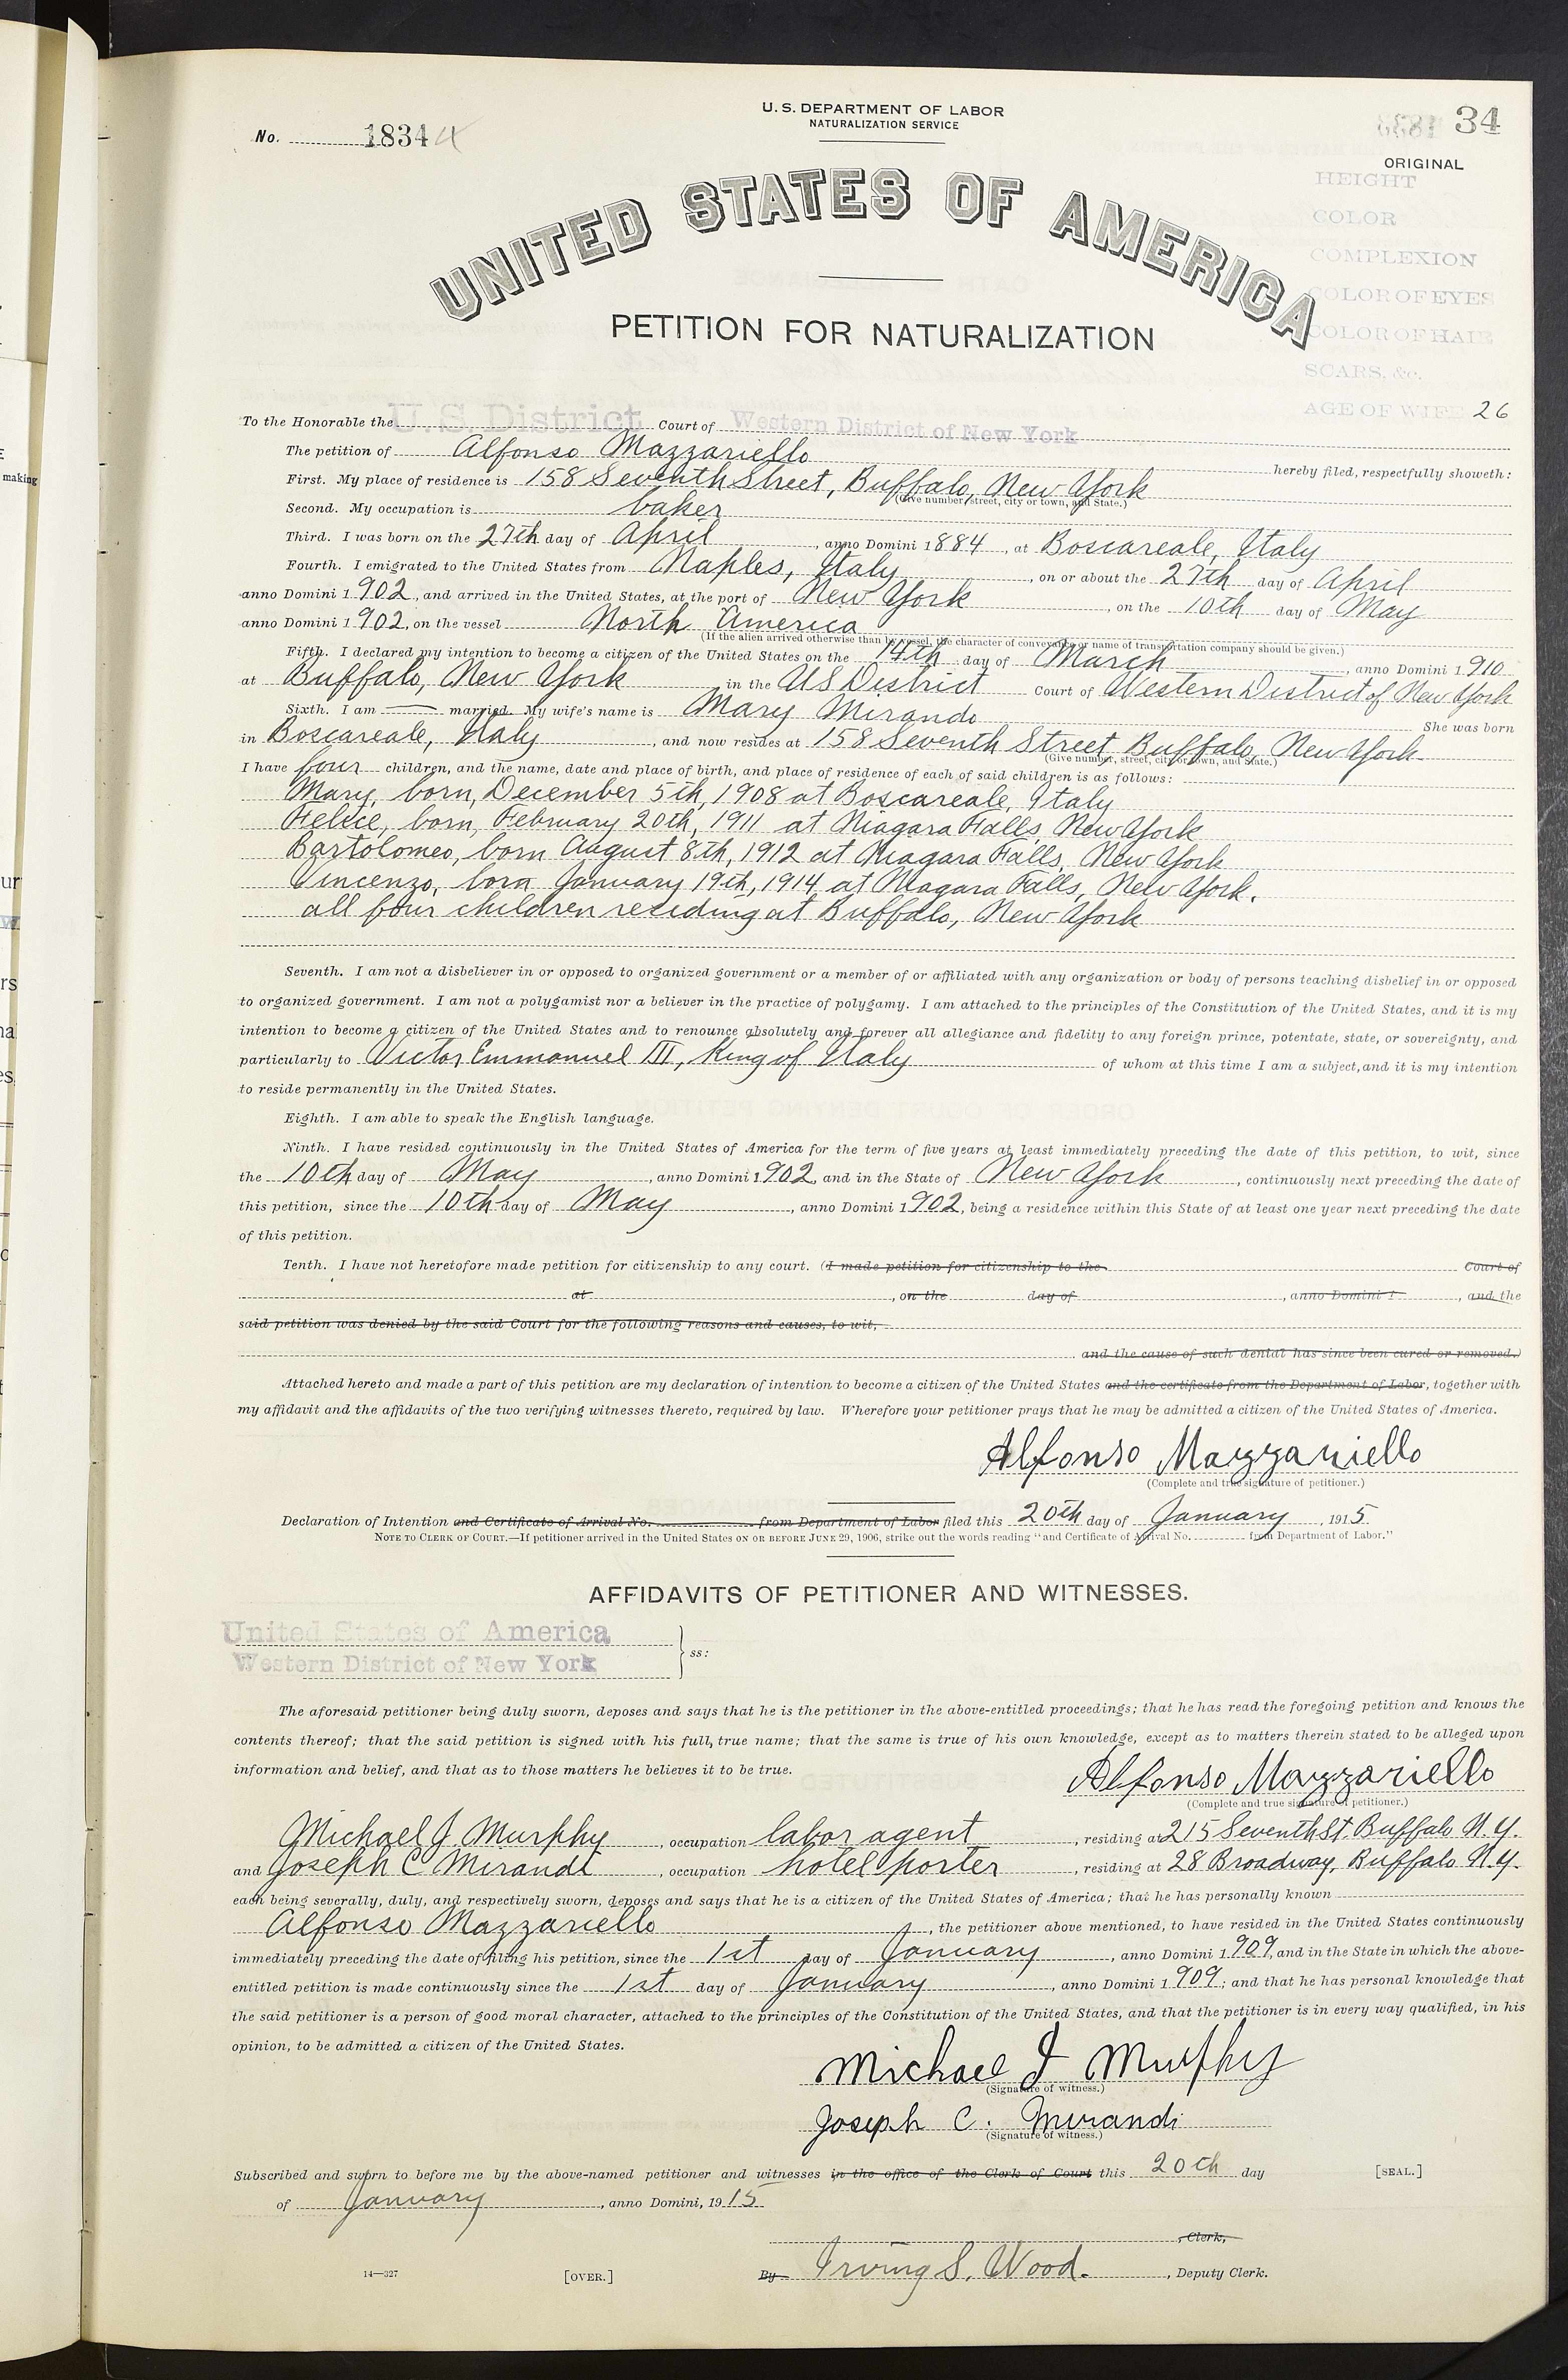 U.S. DEPARTMENT OF LABOR
NATURALIZATION SERVICE
No. 18344
34
ORIGINAL
HEIGHT
COLOR
COMPLEXION
COLOR OF EYES
COLOR OF HAIR
SCARS, &c.
AGE OF WIFE 26
UNITED STATES OF AMERICA
PETITION FOR NATURALIZATION
To the Honorable the U.S. District Court of Western District of New York
The petition of Alfonso Mazzariello hereby filed, respectfully showeth:
First. My place of residence is 158 Seventh Street, Buffalo, New York
(Give number, street, city or town, and State.)
Second. My occupation is baker
Third. I was born on the 27th day of April, anno Domini 1884, at Boscareale, Italy
Fourth. I emigrated to the United States from Naples, Italy, on or about the 27th day of April
anno Domini 1902, and arrived in the United States, at the port of New York, on the 10th day of May
anno Domini 1902, on the vessel North America
(If the alien arrived otherwise than by vessel, the character of conveyance or name of transportation company should be given.)
Fifth. I declared my intention to become a citizen of the United States on the 14th day of March, anno Domini 1910
at Buffalo, New York in the US District Court of Western District of New York
Sixth. I am —— married. My wife's name is Mary Mirando She was born
in Boscareale, Italy, and now resides at 158 Seventh Street Buffalo, New York
(Give number, street, city or town, and State.)
I have four children, and the name, date and place of birth, and place of residence of each of said children is as follows:
Mary, born, December 5th, 1908 at Boscareale, Italy
Felice, born, February 20th, 1911 at Niagara Falls, New York
Bartolomeo, born August 8th, 1912 at Niagara Falls, New York
Vincenzo, born January 19th, 1914 at Niagara Falls, New York.
all four children residing at Buffalo, New York
Seventh. I am not a disbeliever in or opposed to organized government or a member of or affiliated with any organization or body of persons teaching disbelief in or opposed
to organized government. I am not a polygamist nor a believer in the practice of polygamy. I am attached to the principles of the Constitution of the United States, and it is my
intention to become a citizen of the United States and to renounce absolutely and forever all allegiance and fidelity to any foreign prince, potentate, state, or sovereignty, and
particularly to Victor Emmanuel III, King of Italy of whom at this time I am a subject, and it is my intention
to reside permanently in the United States.
Eighth. I am able to speak the English language.
Ninth. I have resided continuously in the United States of America for the term of five years at least immediately preceding the date of this petition, to wit, since
the 10th day of May, anno Domini 1902, and in the State of New York, continuously next preceding the date of
this petition, since the 10th day of May, anno Domini 1902, being a residence within this State of at least one year next preceding the date
of this petition.
Tenth. I have not heretofore made petition for citizenship to any court. (I made petition for citizenship to the Court of
at, on the day of, anno Domini 1, and the
said petition was denied by the said Court for the following reasons and causes, to wit,
and the cause of such denial has since been cured or removed.)
Attached hereto and made a part of this petition are my declaration of intention to become a citizen of the United States and the certificate from the Department of Labor, together with
my affidavit and the affidavits of the two verifying witnesses thereto, required by law. Wherefore your petitioner prays that he may be admitted a citizen of the United States of America.
Alfonso Mazzariello
(Complete and true signature of petitioner.)
Declaration of Intention and Certificate of Arrival No. from Department of Labor filed this 20th day of January, 1915
NOTE TO CLERK OF COURT.—If petitioner arrived in the United States ON OR BEFORE JUNE 29, 1906, strike out the words reading "and Certificate of Arrival No. from Department of Labor."
AFFIDAVITS OF PETITIONER AND WITNESSES.
United States of America
Western District of New York
ss:
The aforesaid petitioner being duly sworn, deposes and says that he is the petitioner in the above-entitled proceedings; that he has read the foregoing petition and knows the
contents thereof; that the said petition is signed with his full, true name; that the same is true of his own knowledge, except as to matters therein stated to be alleged upon
information and belief, and that as to those matters he believes it to be true.
Alfonso Mazzariello
(Complete and true signature of petitioner.)
Michael J Murphy, occupation labor agent, residing at 215 Seventh St. Buffalo N.Y.
and Joseph C Mirandi, occupation hotel porter, residing at 28 Broadway, Buffalo N.Y.
each being severally, duly, and respectively sworn, deposes and says that he is a citizen of the United States of America; that he has personally known
Alfonso Mazzariello, the petitioner above mentioned, to have resided in the United States continuously
immediately preceding the date of filing his petition, since the 1st day of January, anno Domini 1909, and in the State in which the above-
entitled petition is made continuously since the 1st day of January, anno Domini 1909; and that he has personal knowledge that
the said petitioner is a person of good moral character, attached to the principles of the Constitution of the United States, and that the petitioner is in every way qualified, in his
opinion, to be admitted a citizen of the United States.
Michael J Murphy
(Signature of witness.)
Joseph C. Mirandi
(Signature of witness.)
Subscribed and sworn to before me by the above-named petitioner and witnesses in the office of the Clerk of Court this 20th day
[SEAL.]
of January, anno Domini, 1915
, Clerk,
By Irving S. Wood., Deputy Clerk.
14—327
[OVER.]